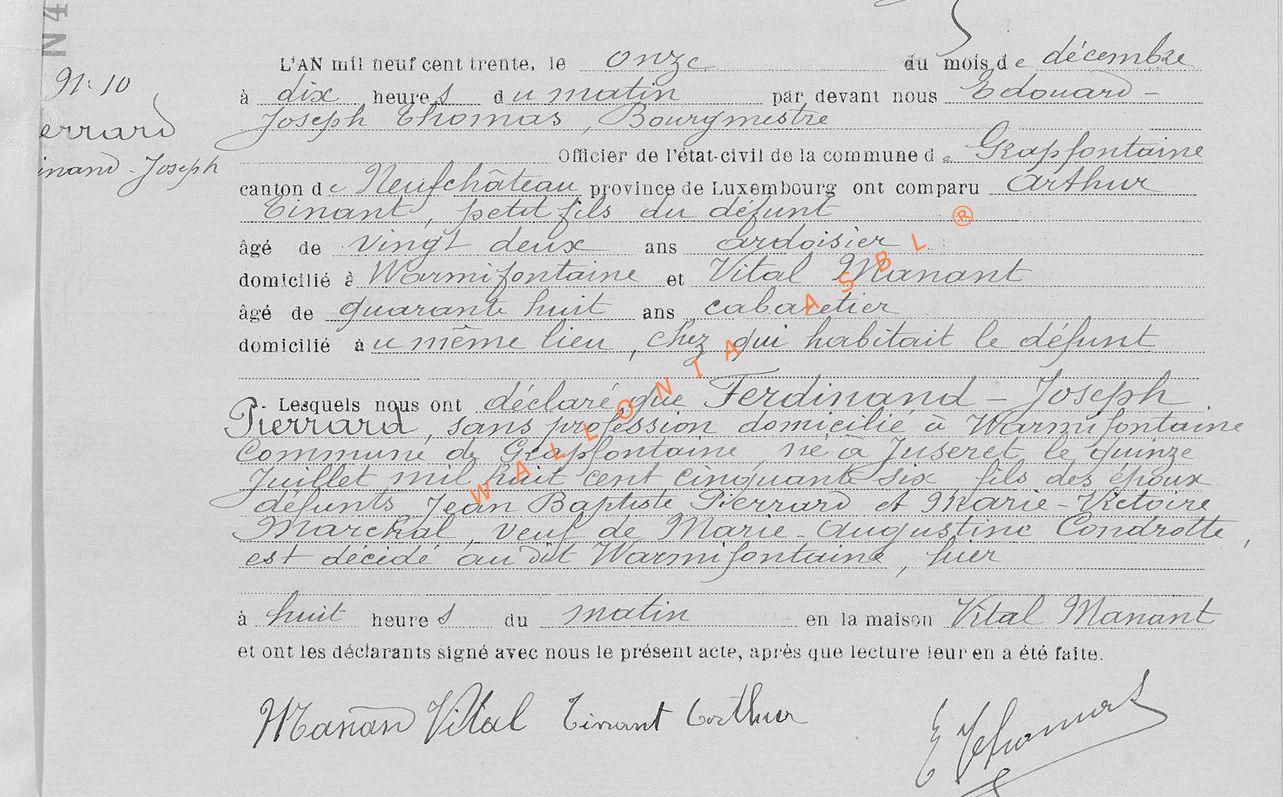 N 4
Nº 10
errard
inand-Joseph
L'AN mil neuf cent trente, le onze du mois de décembre
à dix heures du matin par devant nous Edouard-
Joseph Thomas, Bourgmestre
Officier de l'état-civil de la commune de Grapfontaine
canton de Neufchâteau province de Luxembourg ont comparu Arthur
Tinant, petit fils du défunt
âgé de vingt deux ans ardoisier
domicilié à Warmifontaine et Vital Manant
âgé de quarante huit ans cabaretier
domicilié au même lieu, chez qui habitait le défunt
Lesquels nous ont déclaré que Ferdinand-Joseph
Pierrard, sans profession domicilié à Warmifontaine
Commune de Grapfontaine, né à Juseret le quinze
Juillet mil huit cent cinquante six fils des époux
défunts Jean Baptiste Pierrard et Marie-Victoire
Marchal, veuf de Marie-Augustine Condrotte,
est décédé au dit Warmifontaine, hier
à huit heures du matin en la maison Vital Manant
et ont les déclarants signé avec nous le présent acte, après que lecture leur en a été faite.
Manan Vital Tinant Arthur
E Thomas
WALLONIA ASBL ®